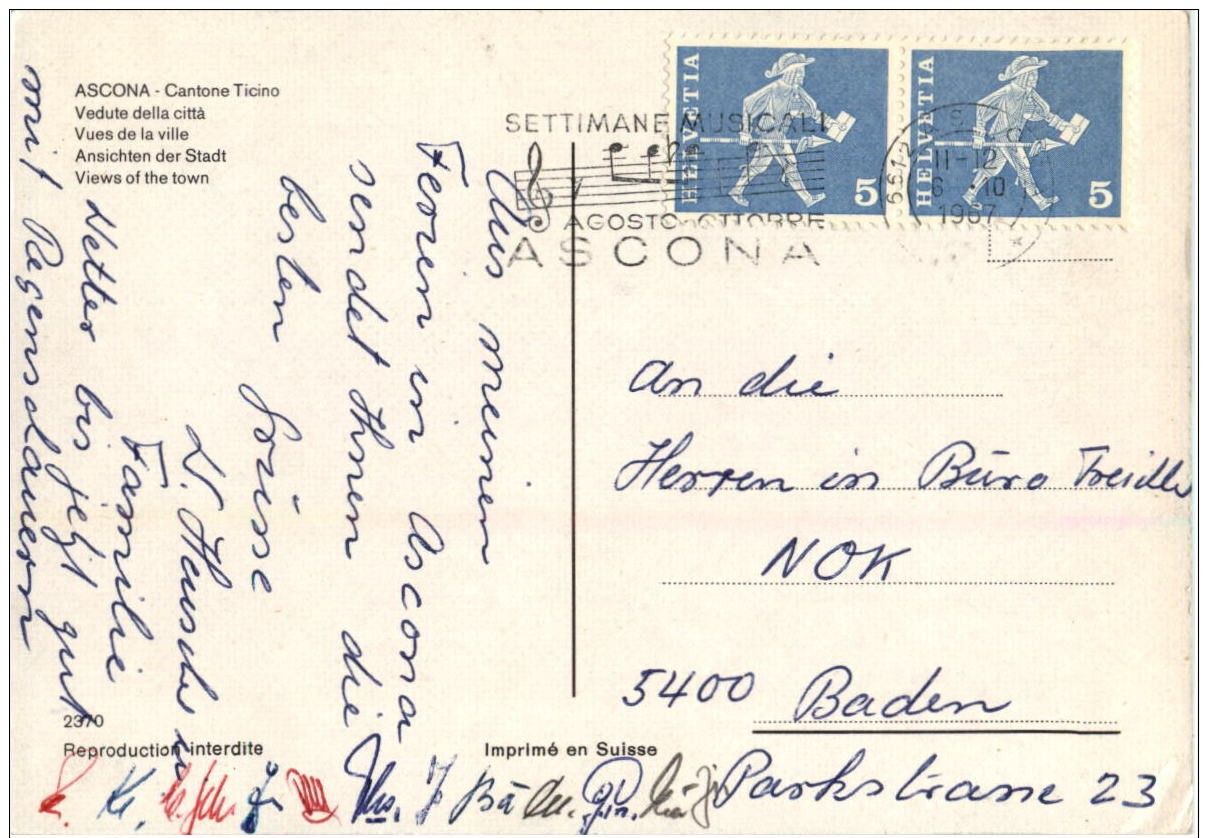 ASCONA - Cantone Ticino
Vedute della città
Vues de la ville
Ansichten der Stadt
Views of the town
HELVETIA
5
HELVETIA
5
SETTIMANE MUSICALI
AGOSTO-OTTOBRE
ASCONA
6612
11-12
6 .10
1967
Aus meinen
Ferien in Ascona
sendet Ihnen die
besten Grüsse
Familie
Wetter bis jetzt gut
mit Regenschauern
An die
Herren in Büro
NOK
5400 Baden
Parkstrasse 23
2370
Reproduction interdite
Imprimé en Suisse